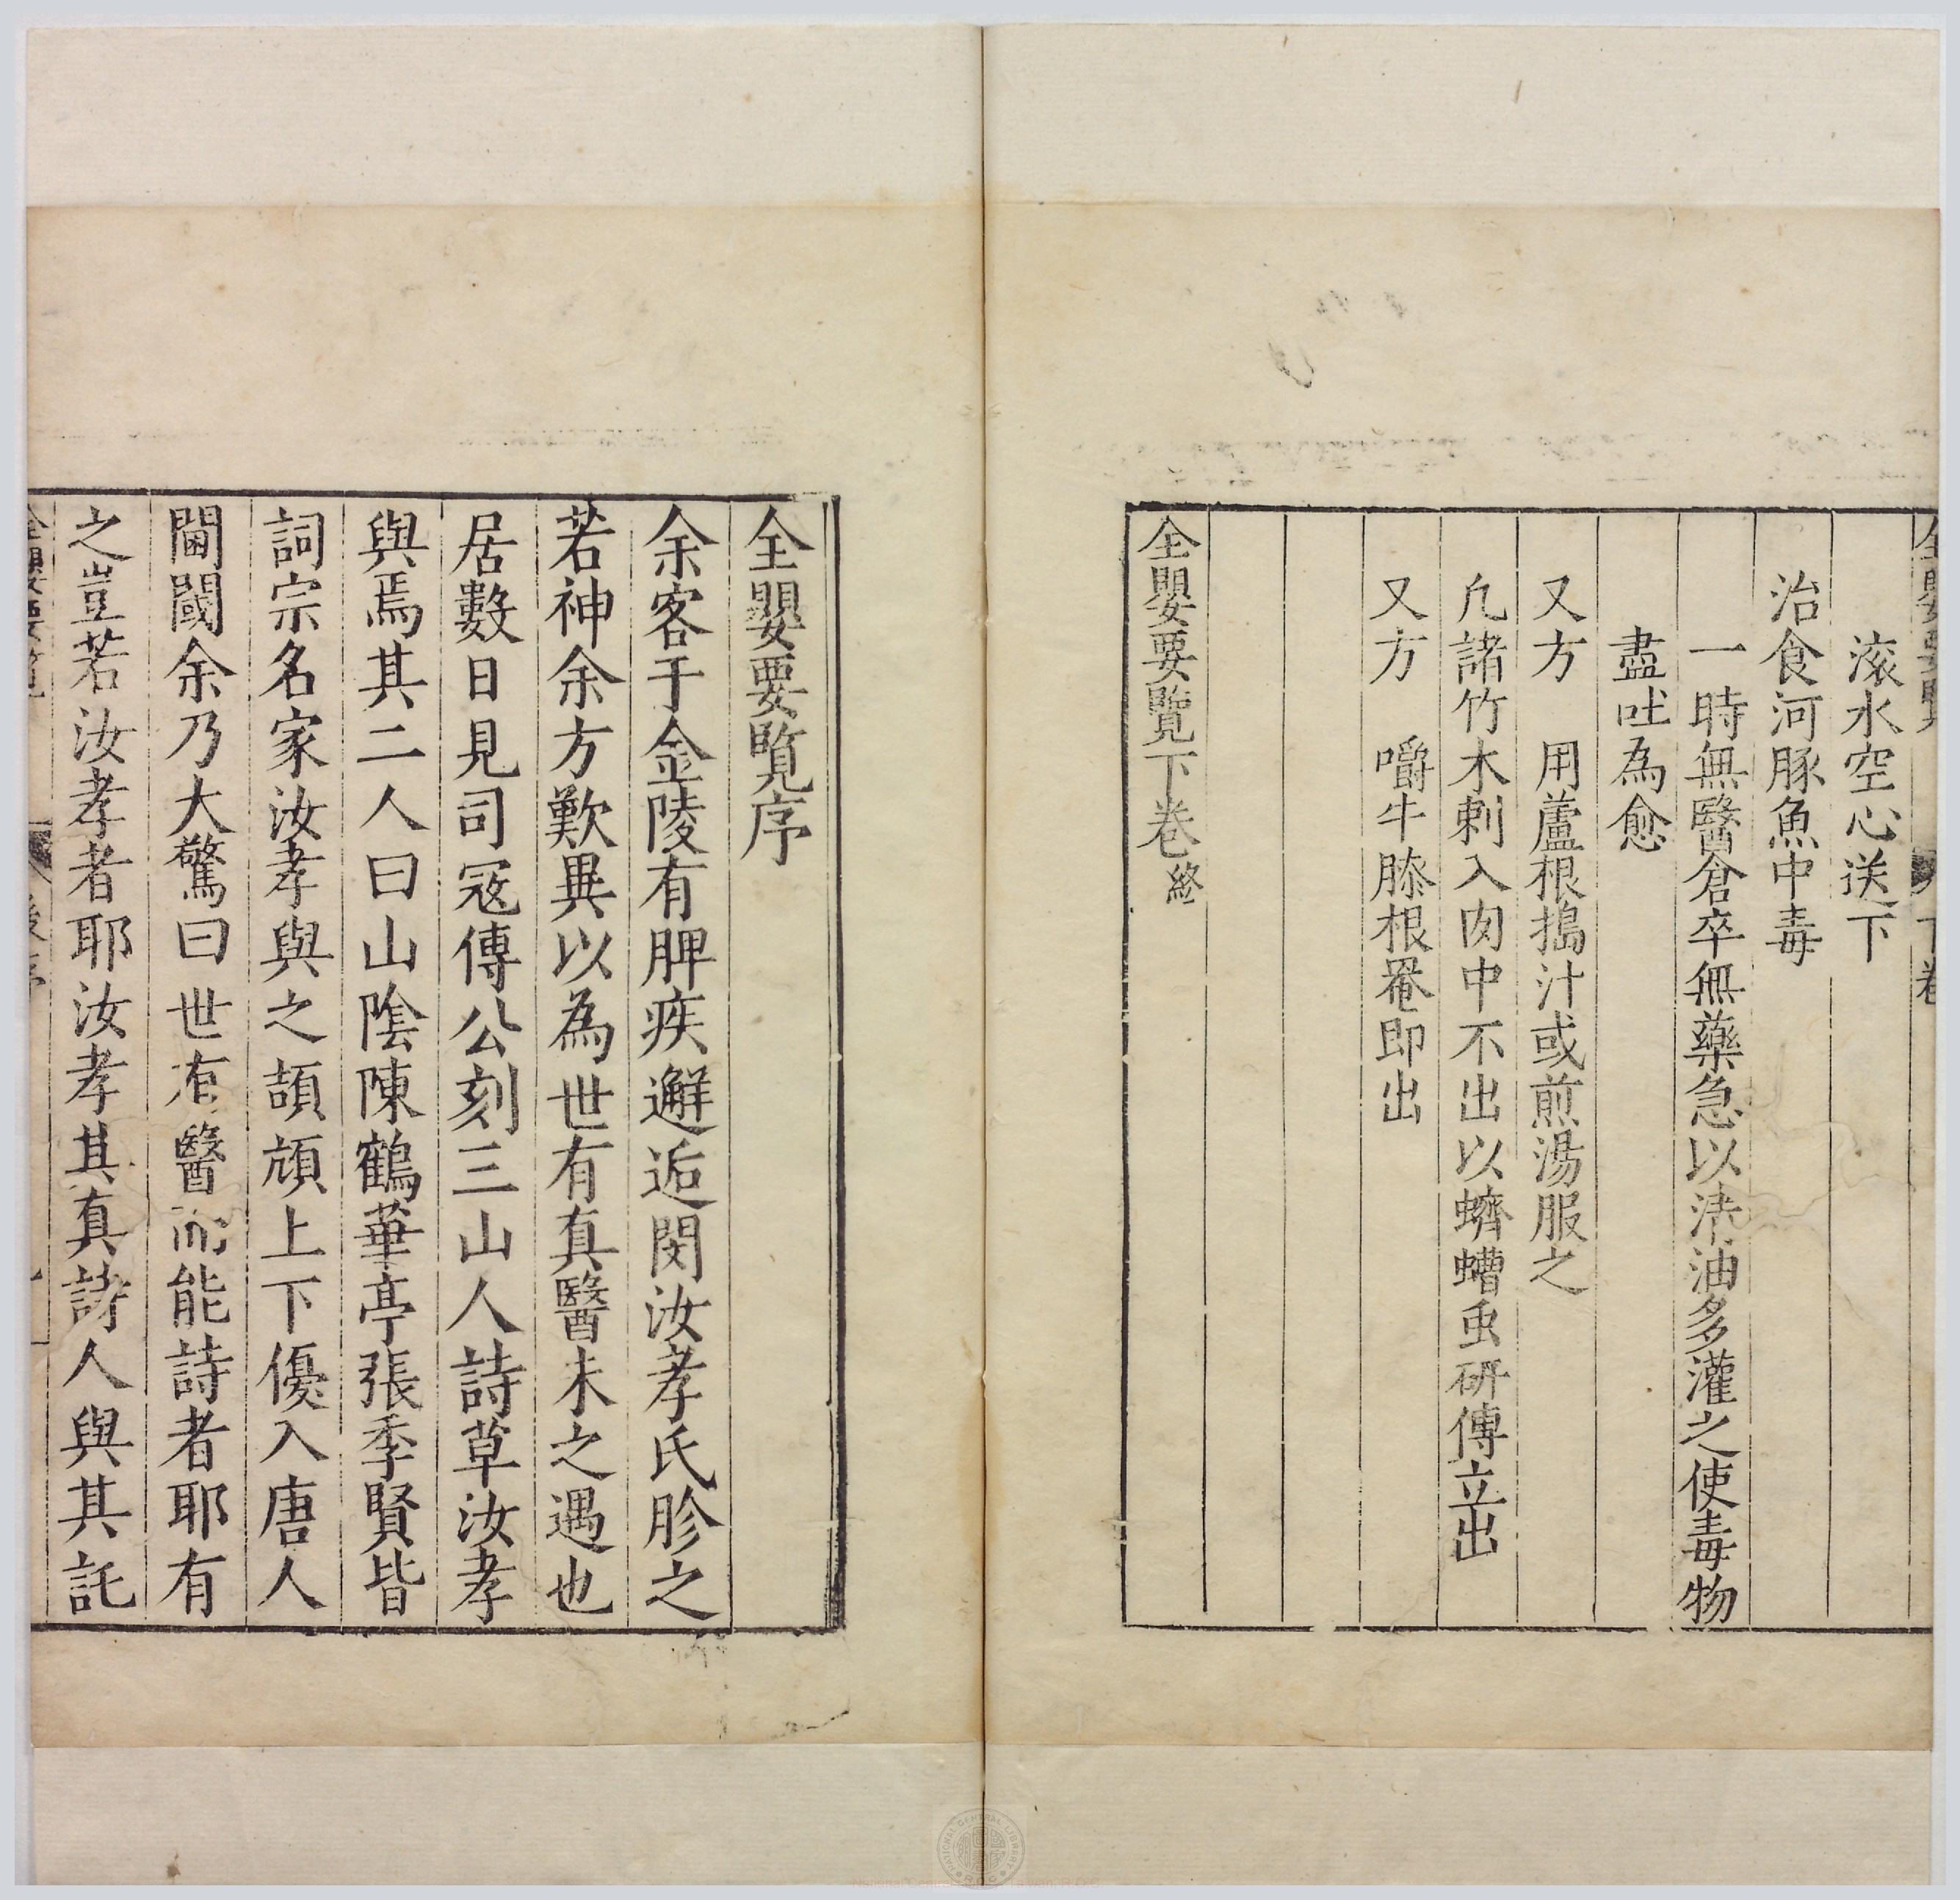 全嬰要覽 下卷
滚水空心送下
治食河豚魚中毒
一時無醫倉卒無藥急以清油多灌之使毒物
盡吐為愈
又方 用蘆根搗汁或煎湯服之
凢諸竹木刺入肉中不出以蠐螬虫研傅立出
又方 嚼牛膝根罨即出
全嬰要覽下卷終
全嬰要覽序
余客于金陵有脾疾邂逅閔汝孝氏胗之
若神余方歎異以為世有真醫未之遇也
居數日見司冦傅公刻三山人詩草汝孝
與焉其二人曰山陰陳鶴華亭張季賢皆
詞宗名家汝孝與之頡頏上下優入唐人
閫閾余乃大驚曰世有醫而能詩者耶有
之豈若汝孝者耶汝孝其真詩人與其託
全嬰要覽